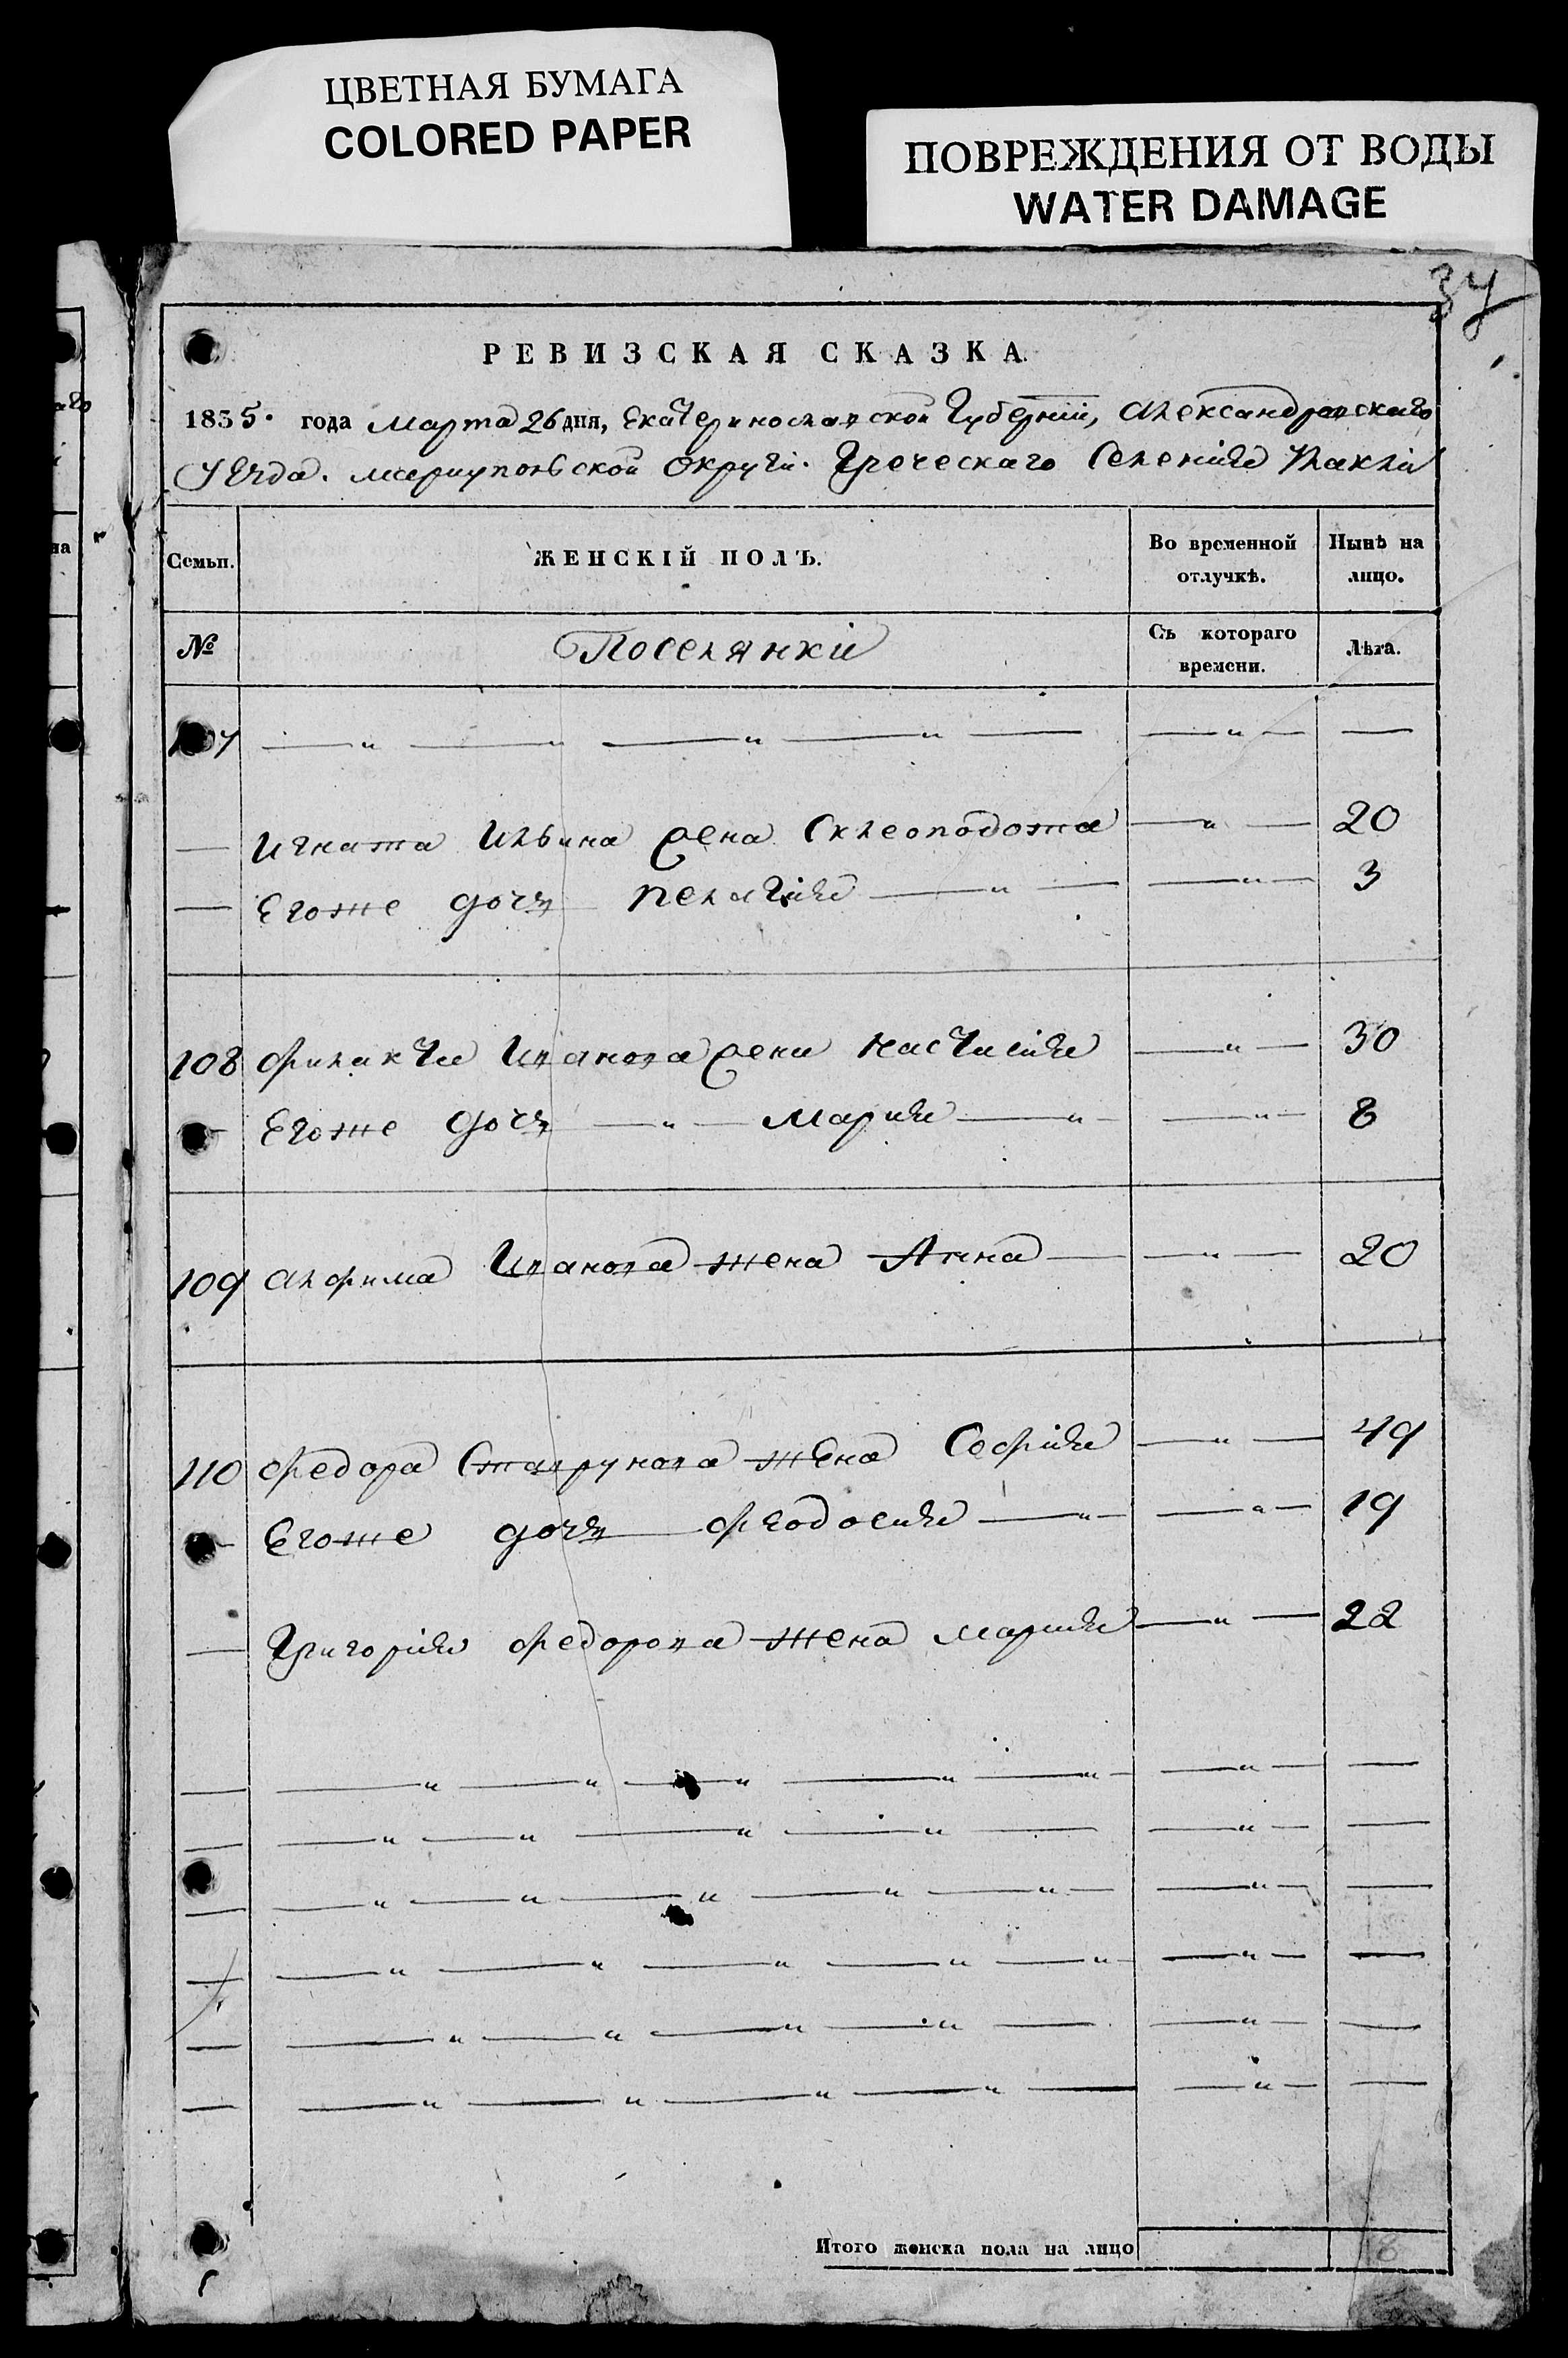 ЦВЕТНАЯ БУМАГА
COLORED PAPER
ПОВРЕЖДЕНИЯ ОТ ВОДЫ
WATER DAMAGE
37
РЕВИЗСКАЯ СКАЗКА.
1835. года марта 26 дня, Екатеринославской Губернии, Александровскаго
Уезда. мариупольской округи. Греческаго Селения
Семьи. ЖЕНСКІЙ ПОЛЪ. Во временной отлучкѣ. Нынѣ на лицо.
№ Поселянки Съ котораго времени. Лѣта.
107 — " — " — " — " — — " — —
— Игната Ильина жена Склеоподота — " — 20
— Егоже дочь пелагия — " — — " — 3
108 филакти Иванова жена настасия — " — 30
— Егоже дочь — " — мария — " — — " — 8
109 алфима Иванова жена Анна — — " — 20
110 федора жена София — " — 49
— Егоже дочь феодосия — " — — " — 19
— Григория федорова жена мария — " — 22
Итого женска пола на лицо 8